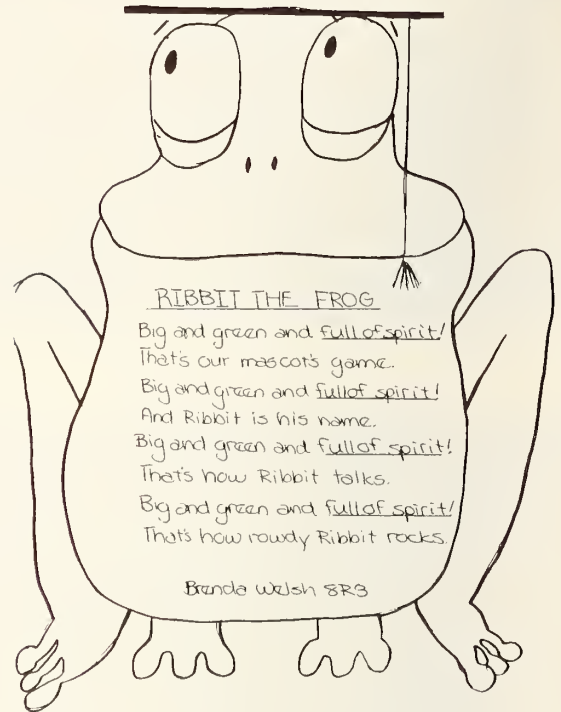 RIBBIT THE FROG
Big and green and full of spirit!
That's our mascot's game.
Big and green and full of spirit!
And Ribbit is his name.
Big and green and full of spirit!
That's how Ribbit talks.
Big and green and full of spirit!
That's how rowdy Ribbit rocks.
Brenda Welsh 8R3